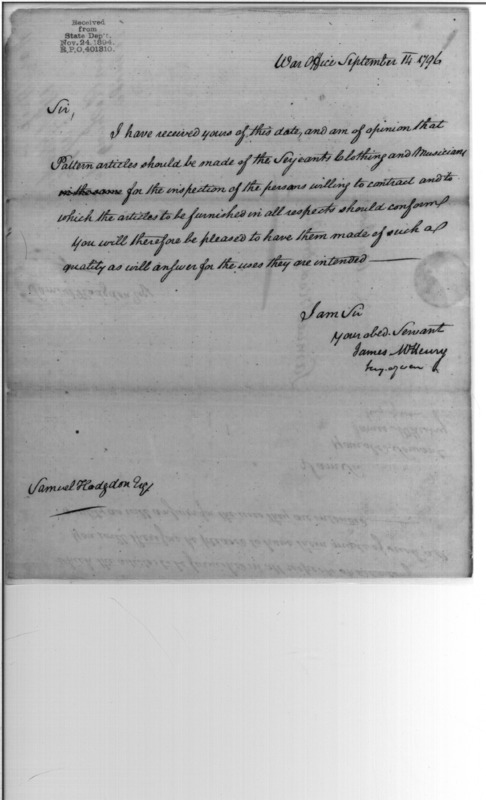 Received
from
State Dep't.
Nov. 24. 1894.
R.P.O. 401310.
War Office September 14 1796
Sir,
I have received yours of this date, and am of opinion that
Pattern articles should be made of the Serjeants Clothing and Musicians
in the same for the inspection of the persons willing to contract and to
which the articles to be furnished in all respects should conform
You will therefore be pleased to have them made of such a
quality as will answer for the uses they are intended
I am Sir
your obed. Servant
James McHenry
Secy. of war
Samuel Hodgdon Esq